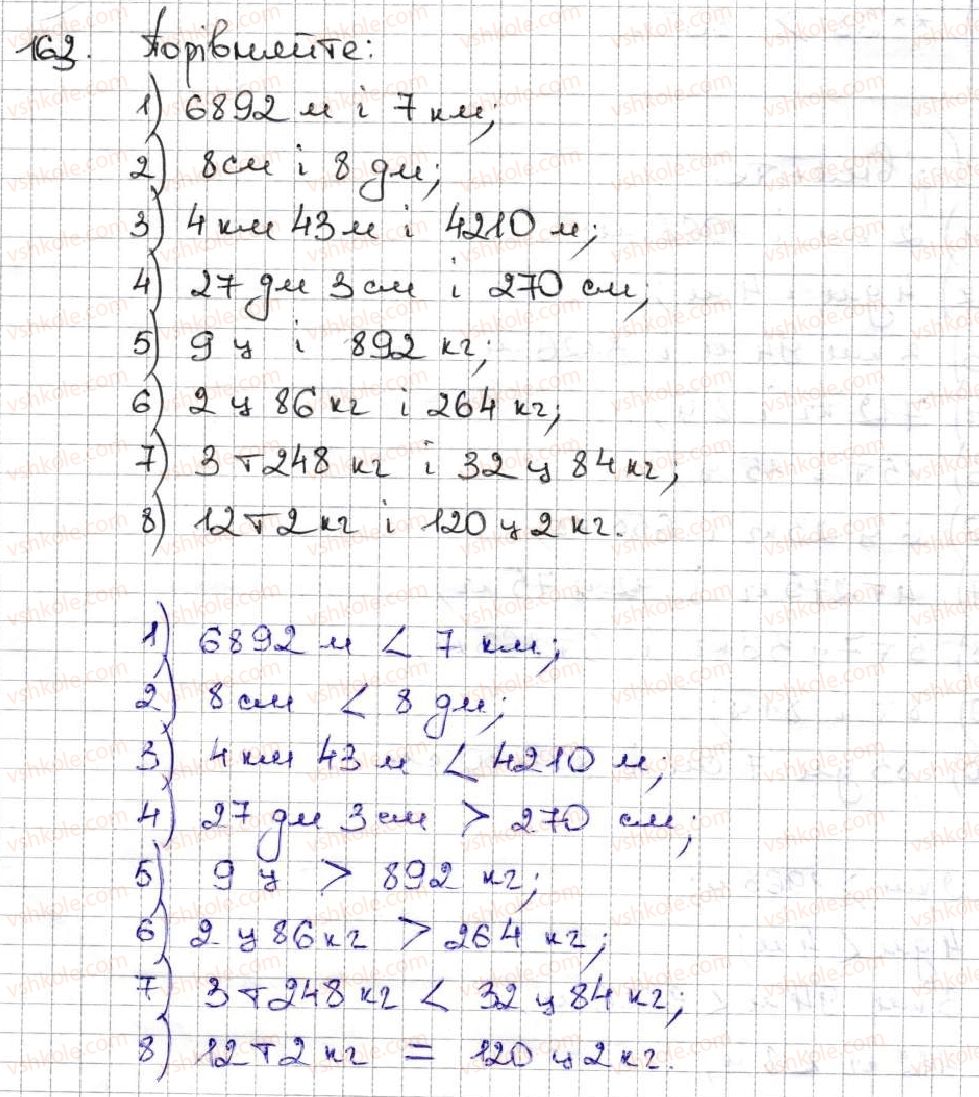 163. Порівняйте:
1) 6892 м і 7 км;
2) 8 см і 8 дм;
3) 4 км 43 м і 4210 м;
4) 27 дм 3 см і 270 см;
5) 9 ц і 892 кг;
6) 2 ц 86 кг і 264 кг;
7) 3 т 248 кг і 32 ц 84 кг;
8) 12 т 2 кг і 120 ц 2 кг.
1) 6892 м < 7 км;
2) 8 см < 8 дм;
3) 4 км 43 м < 4210 м;
4) 27 дм 3 см > 270 см;
5) 9 ц > 892 кг;
6) 2 ц 86 кг > 264 кг;
7) 3 т 248 кг < 32 ц 84 кг;
8) 12 т 2 кг = 120 ц 2 кг.